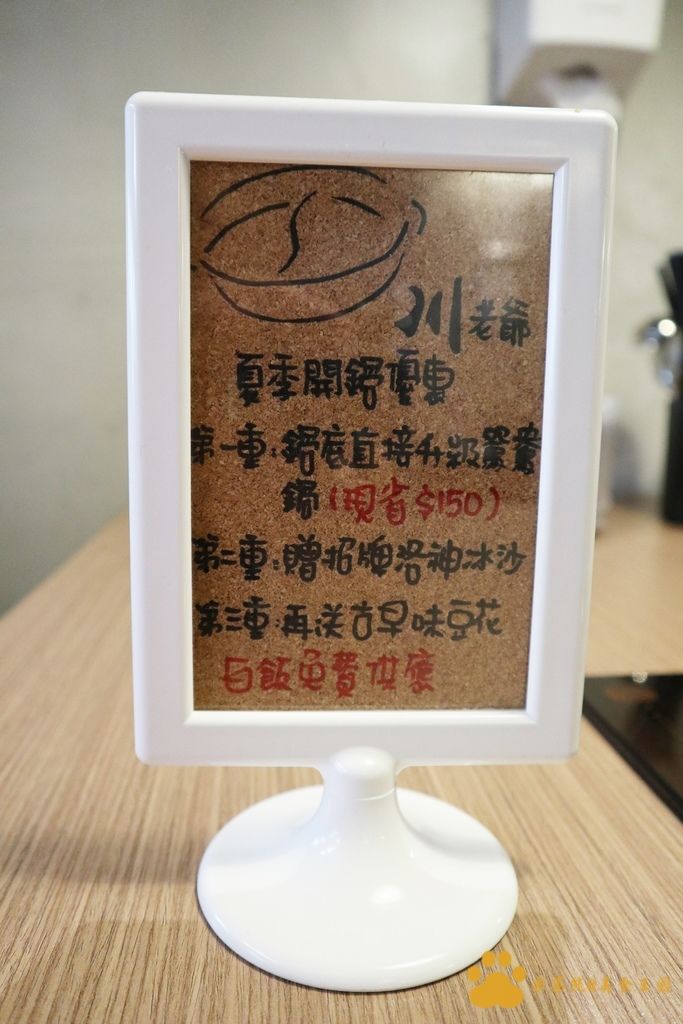 川老爺
夏季開鍋優惠
第一重:鍋底直接升級鴛鴦
鍋(現省$150)
第二重:贈招牌洛神冰沙
第三重:再送古早味豆花
白飯免費供應